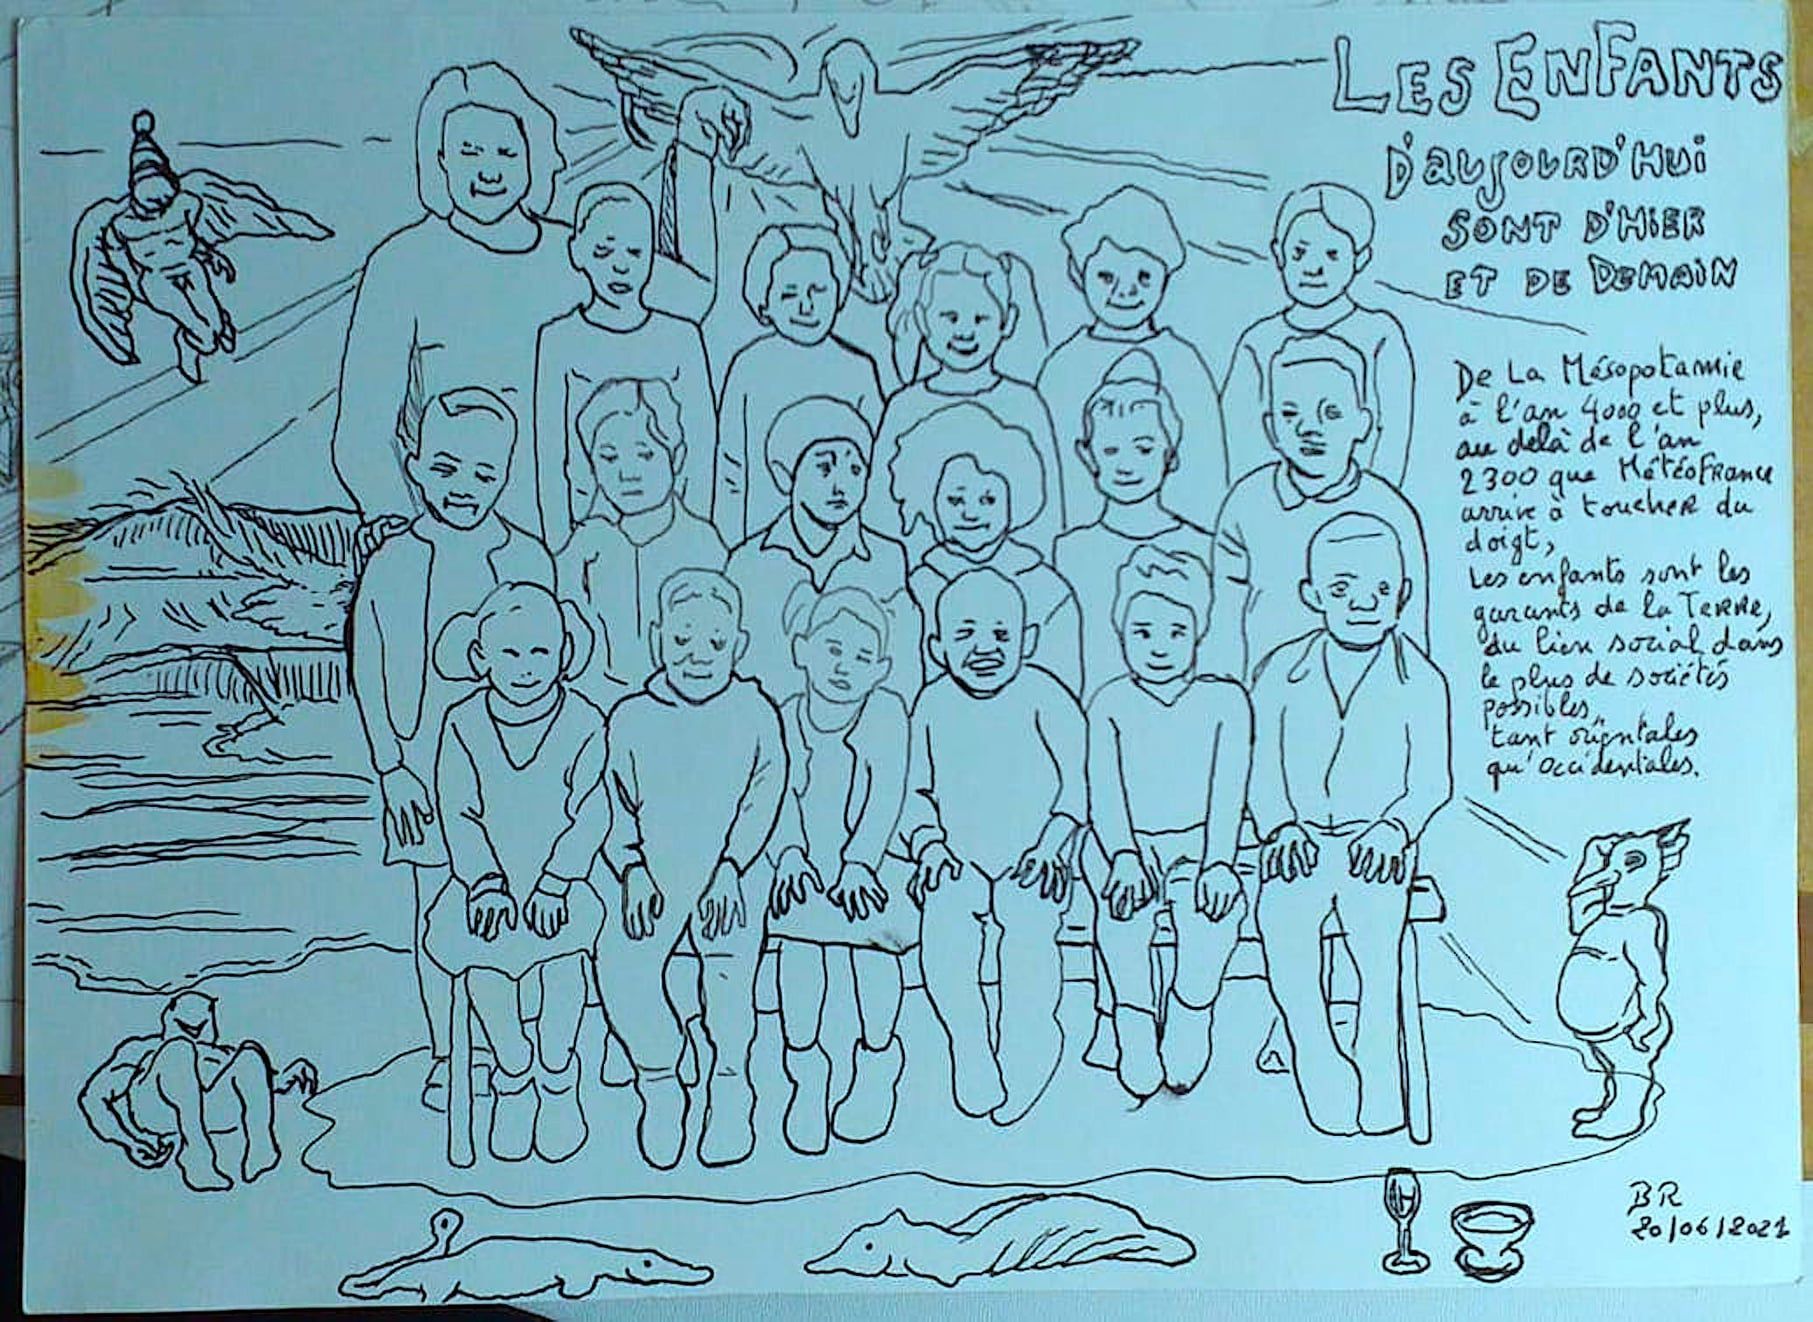 LES ENFANTS
D'AUJOURD'HUI
SONT D'HIER
ET DE DEMAIN
De La Mésopotamie
à l'an 4000 et plus,
au delà de l'an
2300 que MétéoFrance
arrive à toucher du
doigt,
Les enfants sont les
garants de la Terre,
du lien social dans
le plus de sociétés
possibles,
tant orientales
qu'occidentales.
BR
20/06/2021